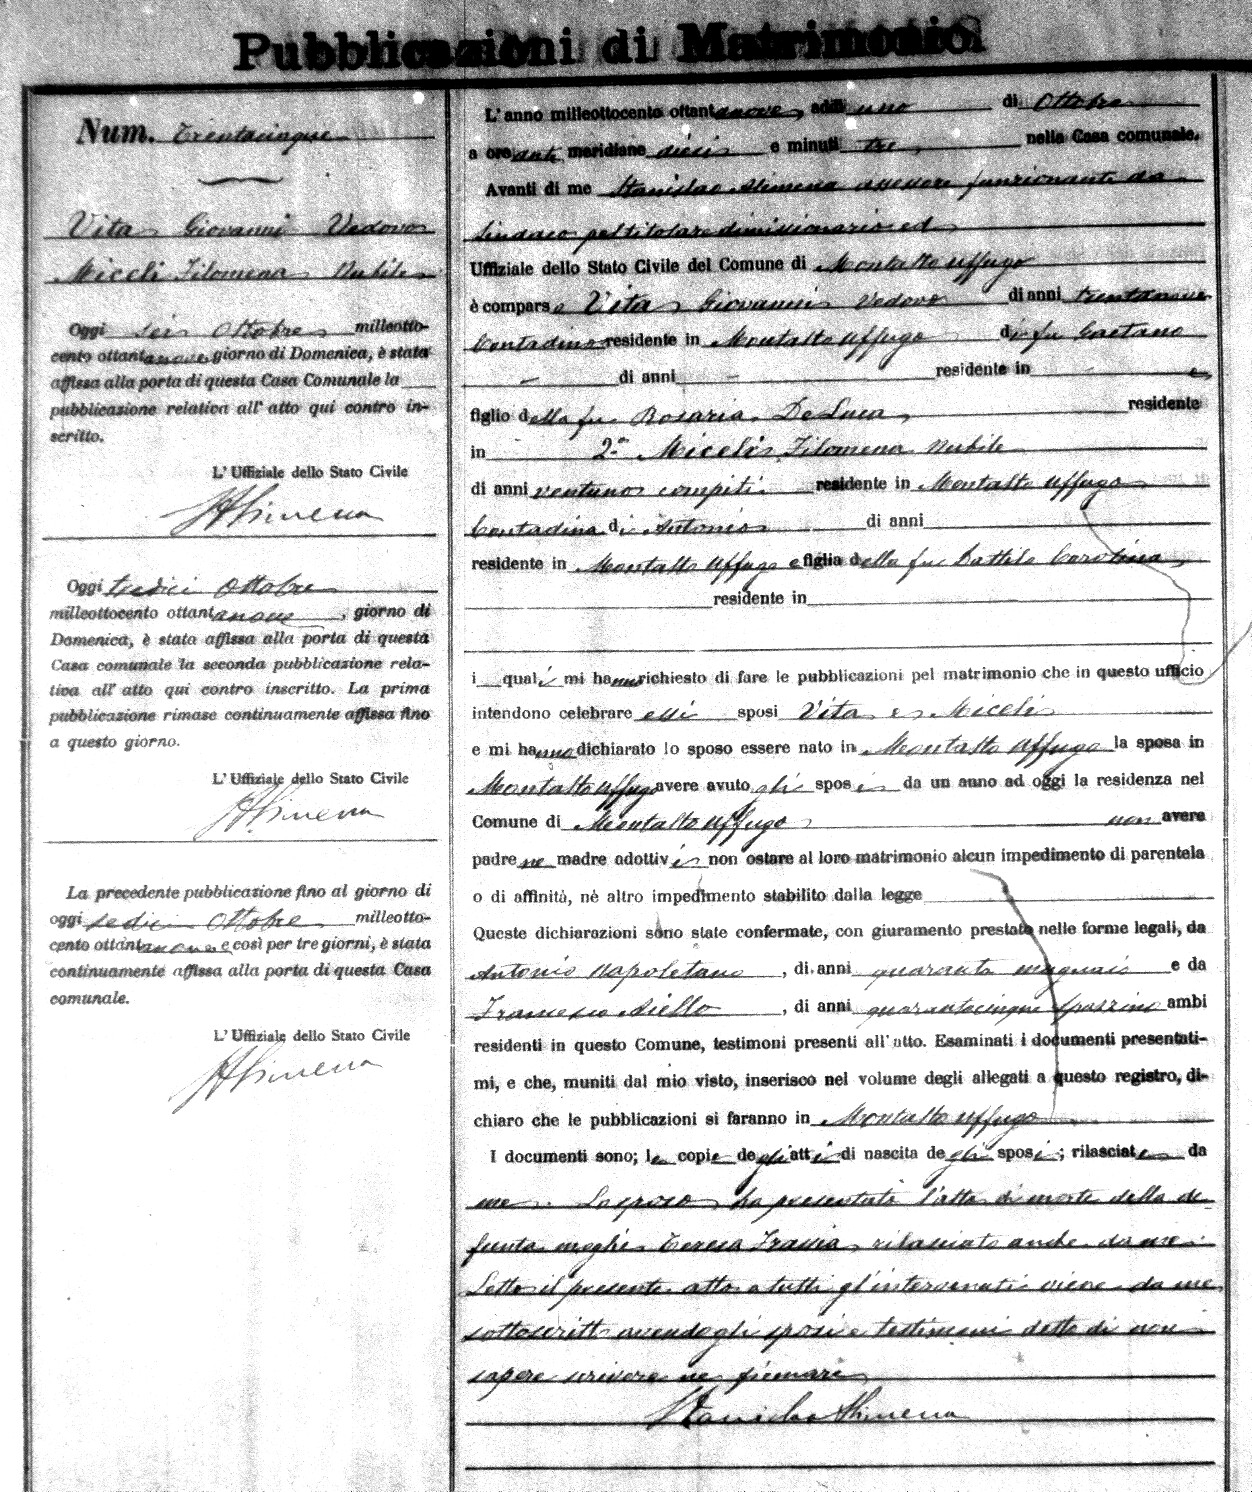 Pubblicazioni di Matrimonio
Num. Trentacinque
Vita Giovanni Vedovo
Miceli Filomena Nubile
Oggi sei Ottobre milleotto-
cento ottantanove giorno di Domenica, è stata
affissa alla porta di questa Casa Comunale la
pubblicazione relativa all' atto qui contro in-
scritto.
L' Uffiziale dello Stato Civile
SAlimena
Oggi tredici Ottobre
milleottocento ottantanove, giorno di
Domenica, è stata affissa alla porta di questa
Casa comunale la seconda pubblicazione rela-
tiva all' atto qui contro inscritto. La prima
pubblicazione rimase continuamente affissa fino
a questo giorno.
L' Uffiziale dello Stato Civile
SAlimena
La precedente pubblicazione fino al giorno di
oggi sedici Ottobre milleotto-
cento ottantanove e così per tre giorni, è stata
continuamente affissa alla porta di questa Casa
comunale.
L' Uffiziale dello Stato Civile
SAlimena
L' anno milleottocento ottantanove, addì uno di Ottobre
a ore anti meridiane dieci e minuti tre, nella Casa comunale.
Avanti di me Stanislao Alimena assessore funzionante da
Sindaco pel titolare dimissionario ed
Uffiziale dello Stato Civile del Comune di Montalto Uffugo
è comparso Vita Giovanni Vedovo di anni trentanove
Contadino residente in Montalto Uffugo di fu Gaetano
di anni residente in e
figlio della fu Rosaria De Luca residente
in 2° Miceli Filomena nubile
di anni ventuno compiti residente in Montalto Uffugo
Contadina di Antonio di anni
residente in Montalto Uffugo e figlia della fu Battilo Carolina
residente in
i quali mi hanno richiesto di fare le pubblicazioni pel matrimonio che in questo ufficio
intendono celebrare essi sposi Vita e Miceli
e mi hanno dichiarato lo sposo essere nato in Montalto Uffugo la sposa in
Montalto Uffugo avere avuto gli sposi da un anno ad oggi la residenza nel
Comune di Montalto Uffugo non avere
padre ne madre adottivi non ostare al loro matrimonio alcun impedimento di parentela
o di affinità, nè altro impedimento stabilito dalla legge
Queste dichiarazioni sono state confermate, con giuramento prestato nelle forme legali, da
Antonio Napoletano, di anni quaranta magnaio e da
Francesco Aiello, di anni quarantacinque spazzino ambi
residenti in questo Comune, testimoni presenti all' atto. Esaminati i documenti presentati-
mi, e che, muniti dal mio visto, inserisco nel volume degli allegati a questo registro, di-
chiaro che le pubblicazioni si faranno in Montalto Uffugo
I documenti sono; le copie degli atti di nascita degli sposi; rilasciate da
me. Lo sposo ha presentato l'atto di morte della de
funta moglie Teresa Frassia, rilasciato anche da me.
Letto il presente atto a tutti gl'intervenuti viene da me
sottoscritto avendo gli sposi e testimoni detto di non
sapere scrivere ne firmare
Stanislao Alimena